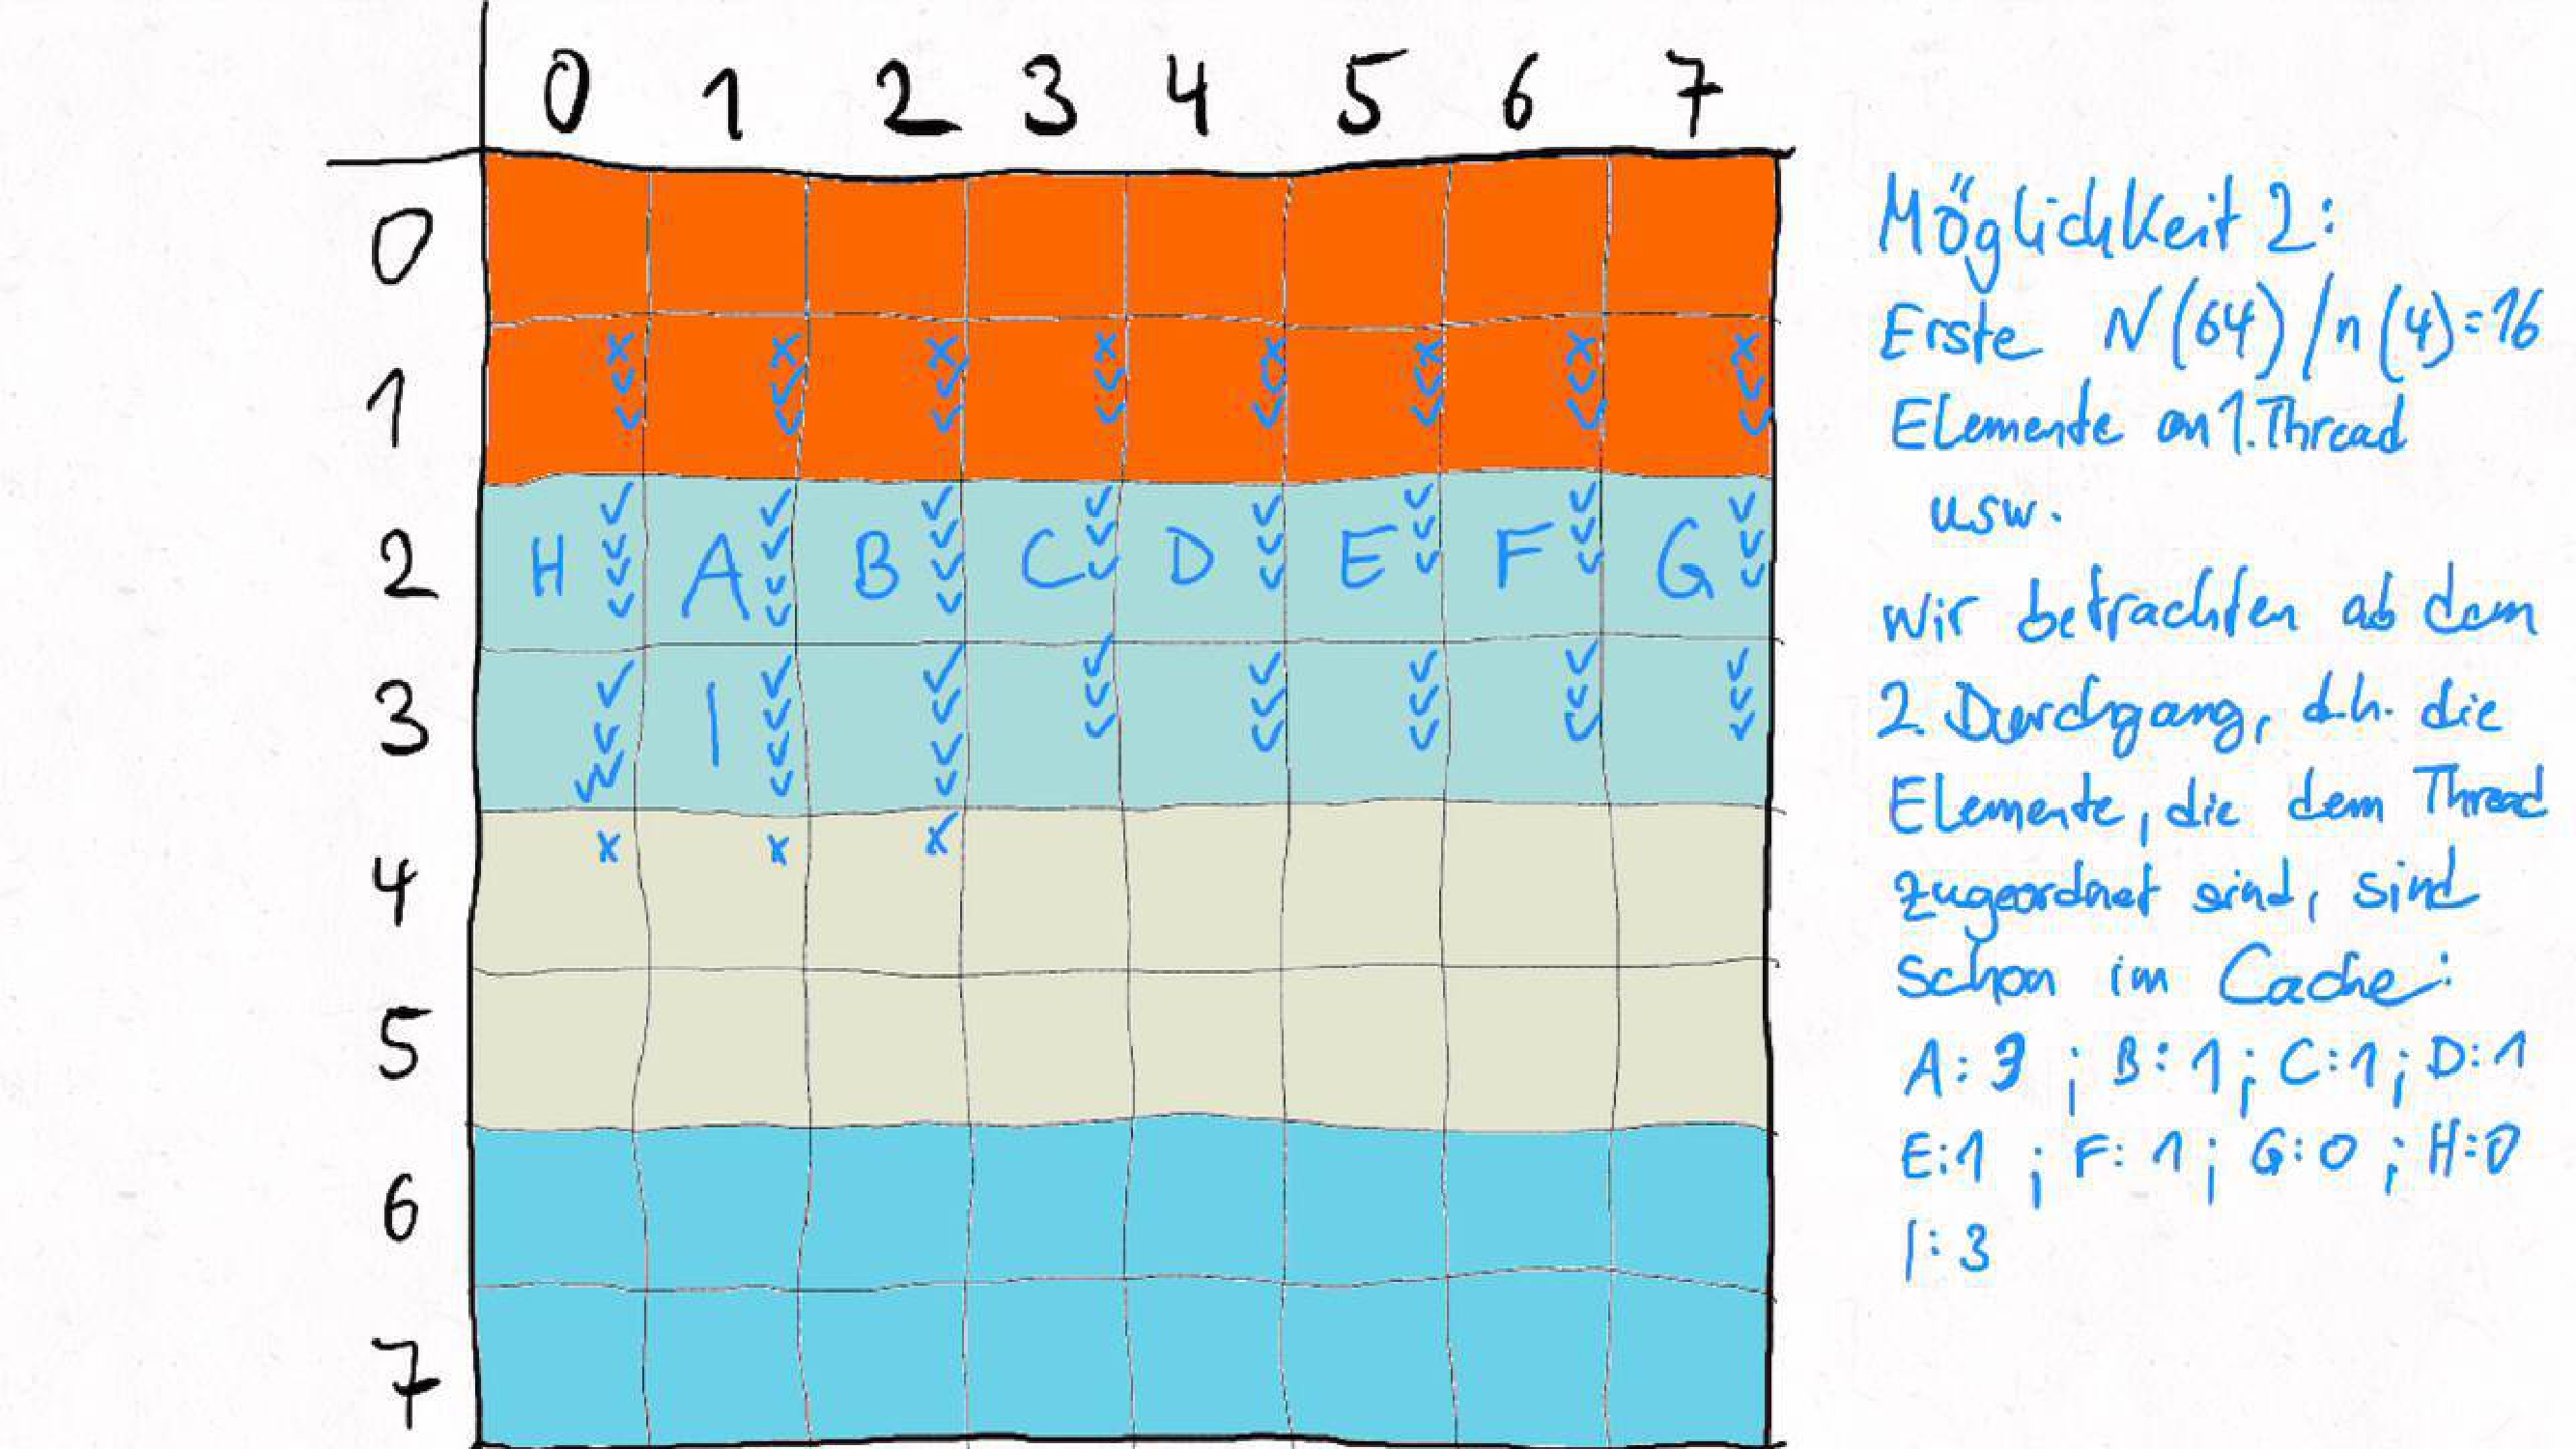 0 1 2 3 4 5 6 7
0
1
2 H A B C D E F G
3 I
4
5
6
7
Möglichkeit 2:
Erste N(64)/n(4)=16
Elemente an 1. Thread
usw.
Wir betrachten ab dem
2. Durchgang, d.h. die
Elemente, die dem Thread
zugeordnet sind, sind
schon im Cache:
A: 3 ; B: 1 ; C: 1 ; D: 1
E: 1 ; F: 1 ; G: 0 ; H: 0
I: 3